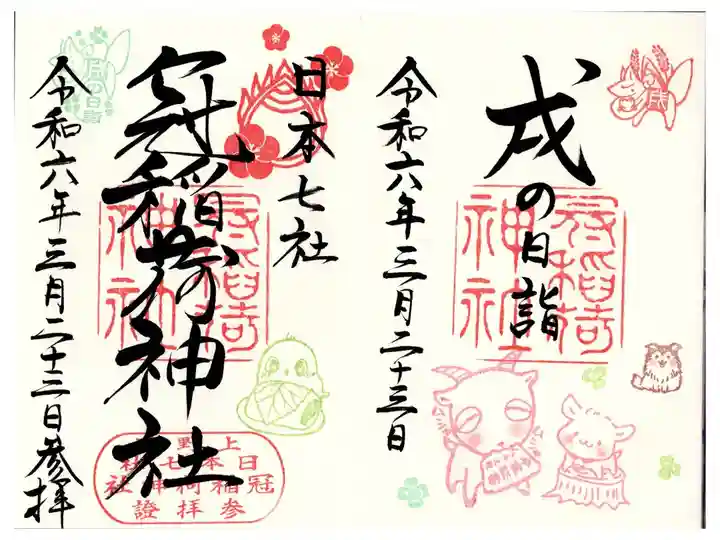 戌の日詣
令和六年三月二十三日
戌
冠稲荷神社
日本七社
冠稲荷神社
令和六年三月二十三日参拝
戌の日詣
冠稲荷神社
上野
日本七社
冠稲荷神社
参拝證